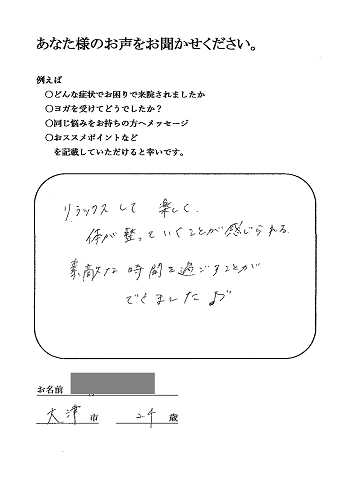 あなた様のお声をお聞かせください。
例えば
○どんな症状でお困りで来院されましたか
○ヨガを受けてどうでしたか？
○同じ悩みをお持ちの方へメッセージ
○おススメポイントなど
を記載していただけると幸いです。
リラックスして 楽しく、
体が整っていくことが感じられる
素敵な時間を過ごすことが
できました♪
お名前
大津 市 24 歳